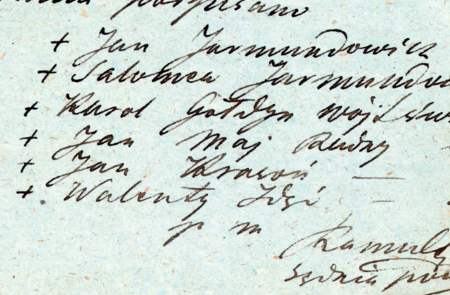 podpisano
+ Jan Jarmundowicz
+ Salomea Jarmundo
+ Karol Gołdyn wójt
+ Jan Maj Radny
+ Jan Krasoń —
+ Walenty Idzi —
p m
Ramuł
Sędzia po